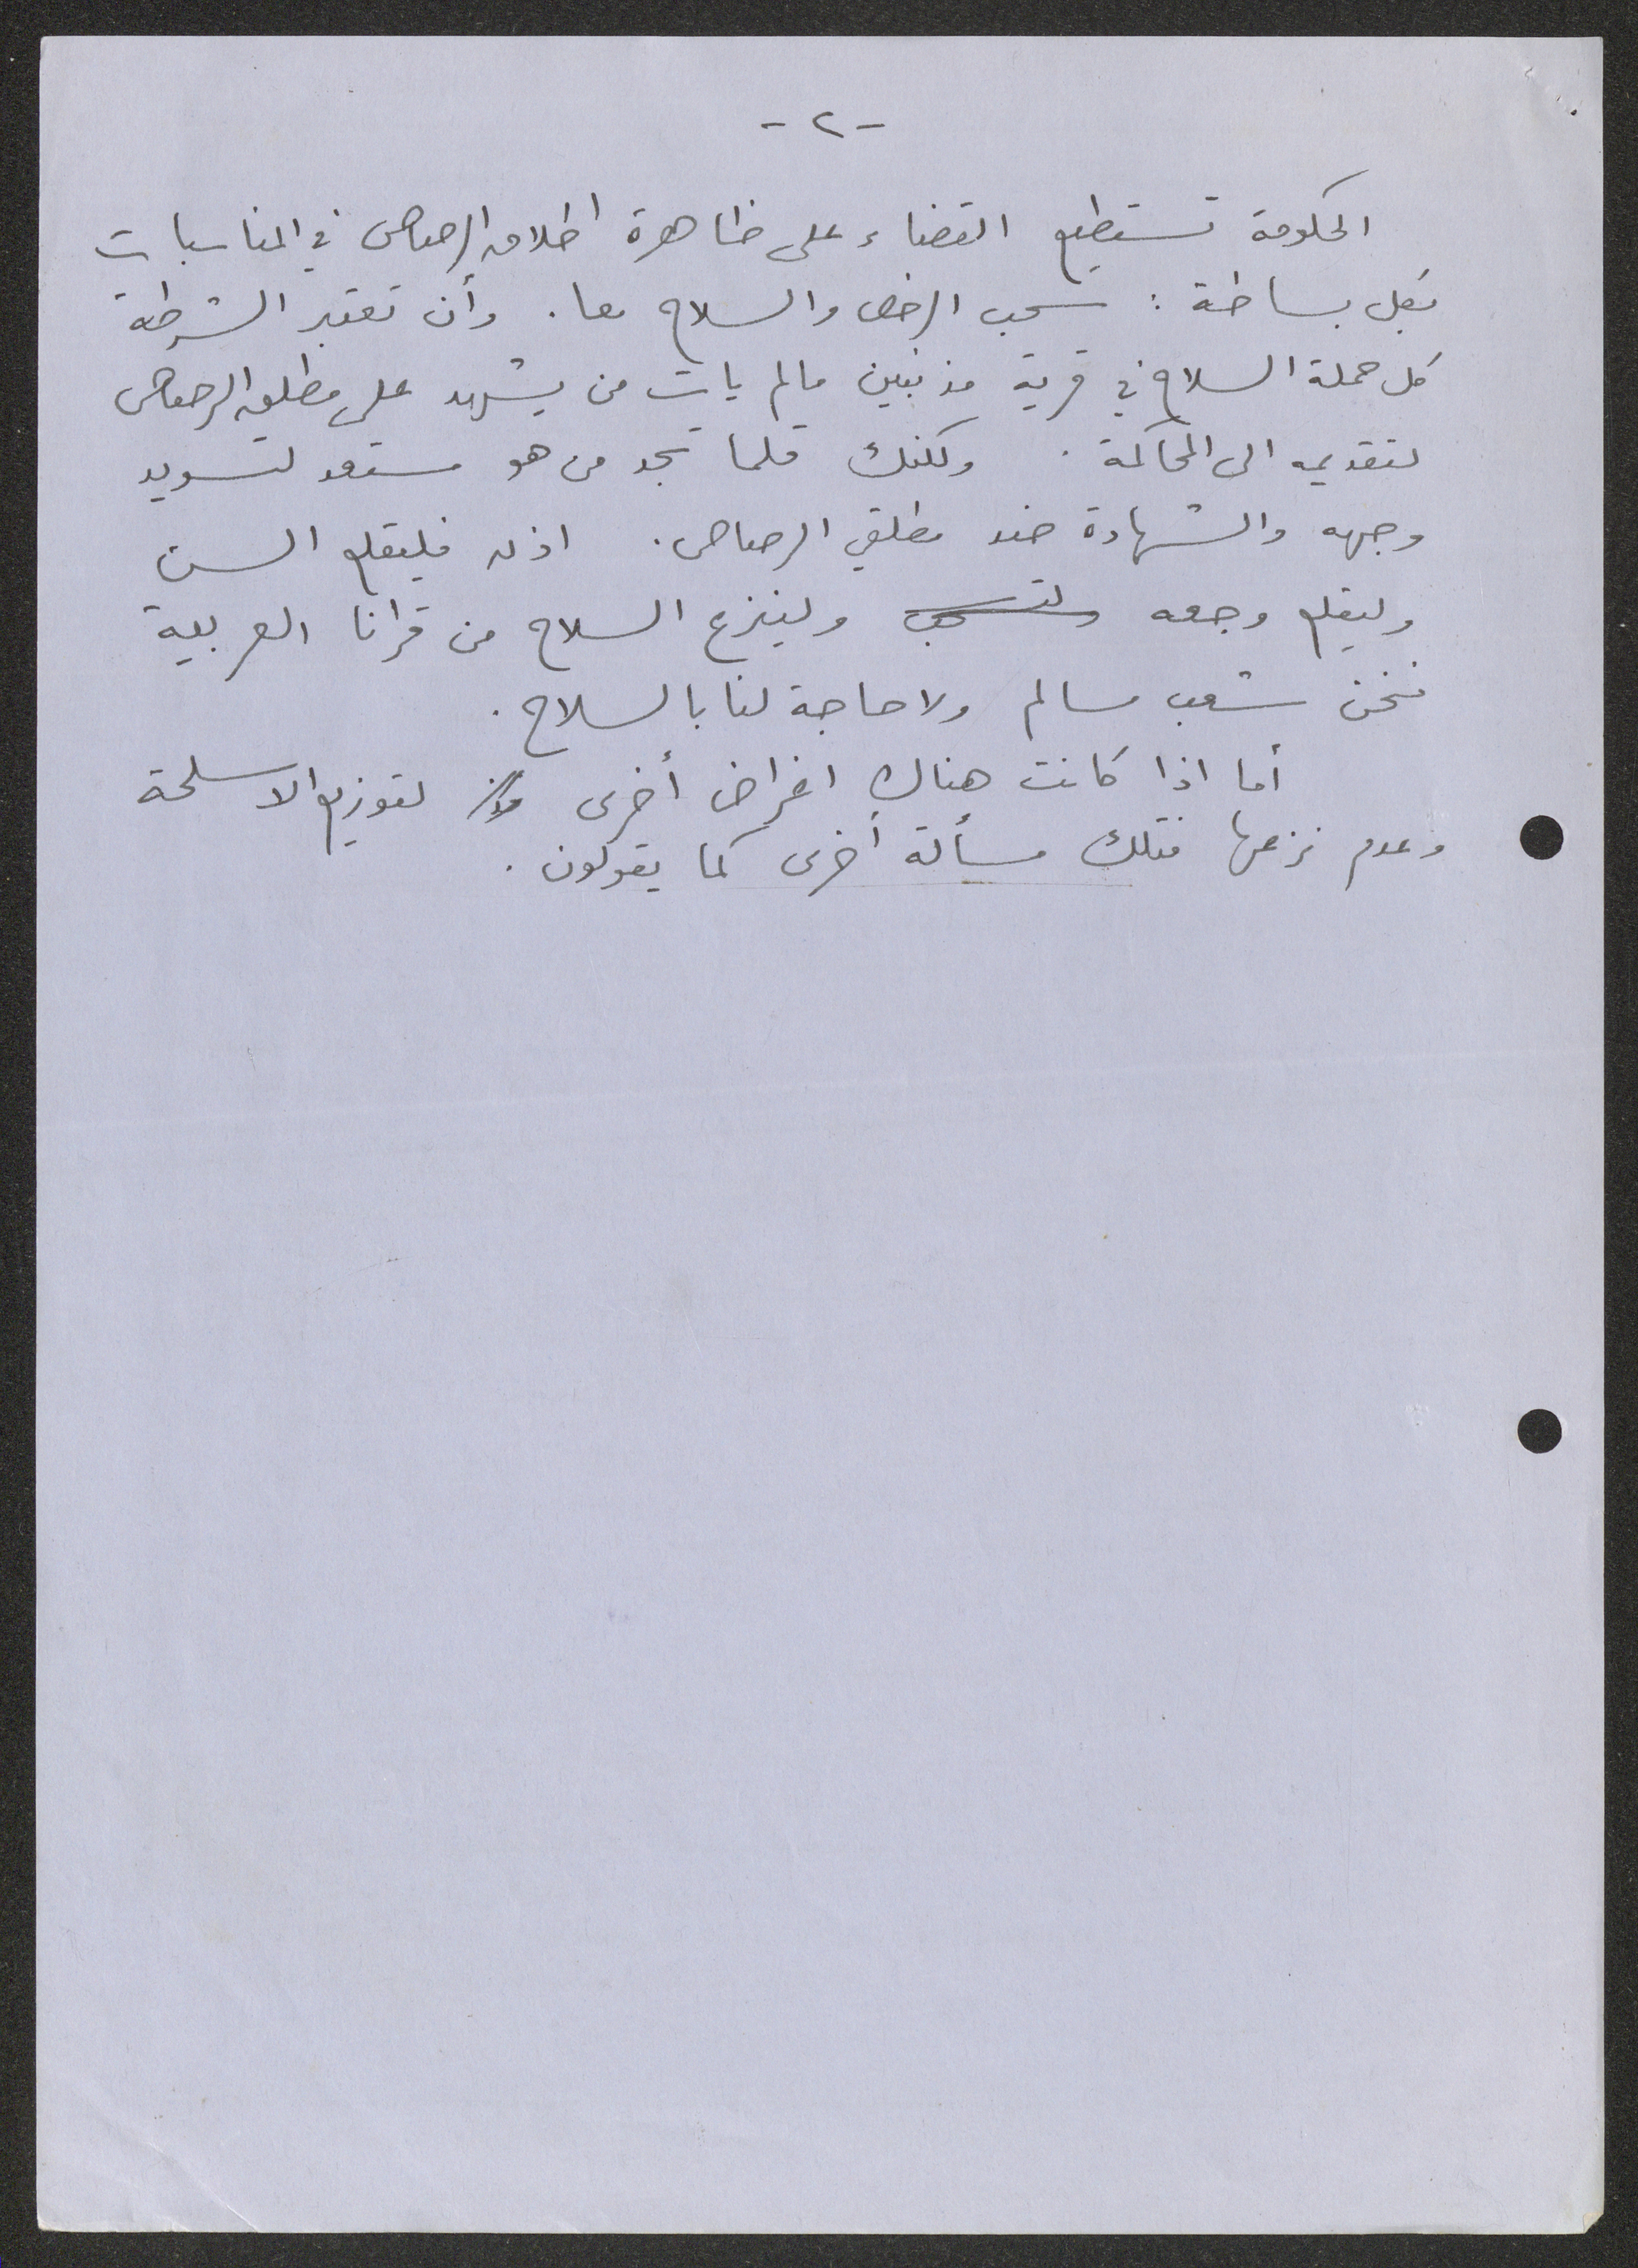 -٢-
الحكومة تستطيع القضاء على ظاهرة اطلاق الرصاص في المناسبات
بكل بساطة : سحب الرخص والسلاح معا . وأن تعتبر الشرطة
كل حملة السلاح في قرية مذنبين مالم يات من يشهد على مطلق الرصاص
لتقديمه الى المحاكمة . ولكنك قلما تجد من هو مستعد لتسويد
وجهه والشهادة ضد مطلقي الرصاص . اذن فليقلع السن
وليقلع وجعه ولتسحب ولينزع السلاح من قرانا العربية
فنحن شعب مسالم ولا حاجة لنا بالسلاح .
أما اذا كانت هناك اغراض أخرى لتوزيع الاسلحة
وعدم نزعها فتلك مسألة أخرى كما يقولون .